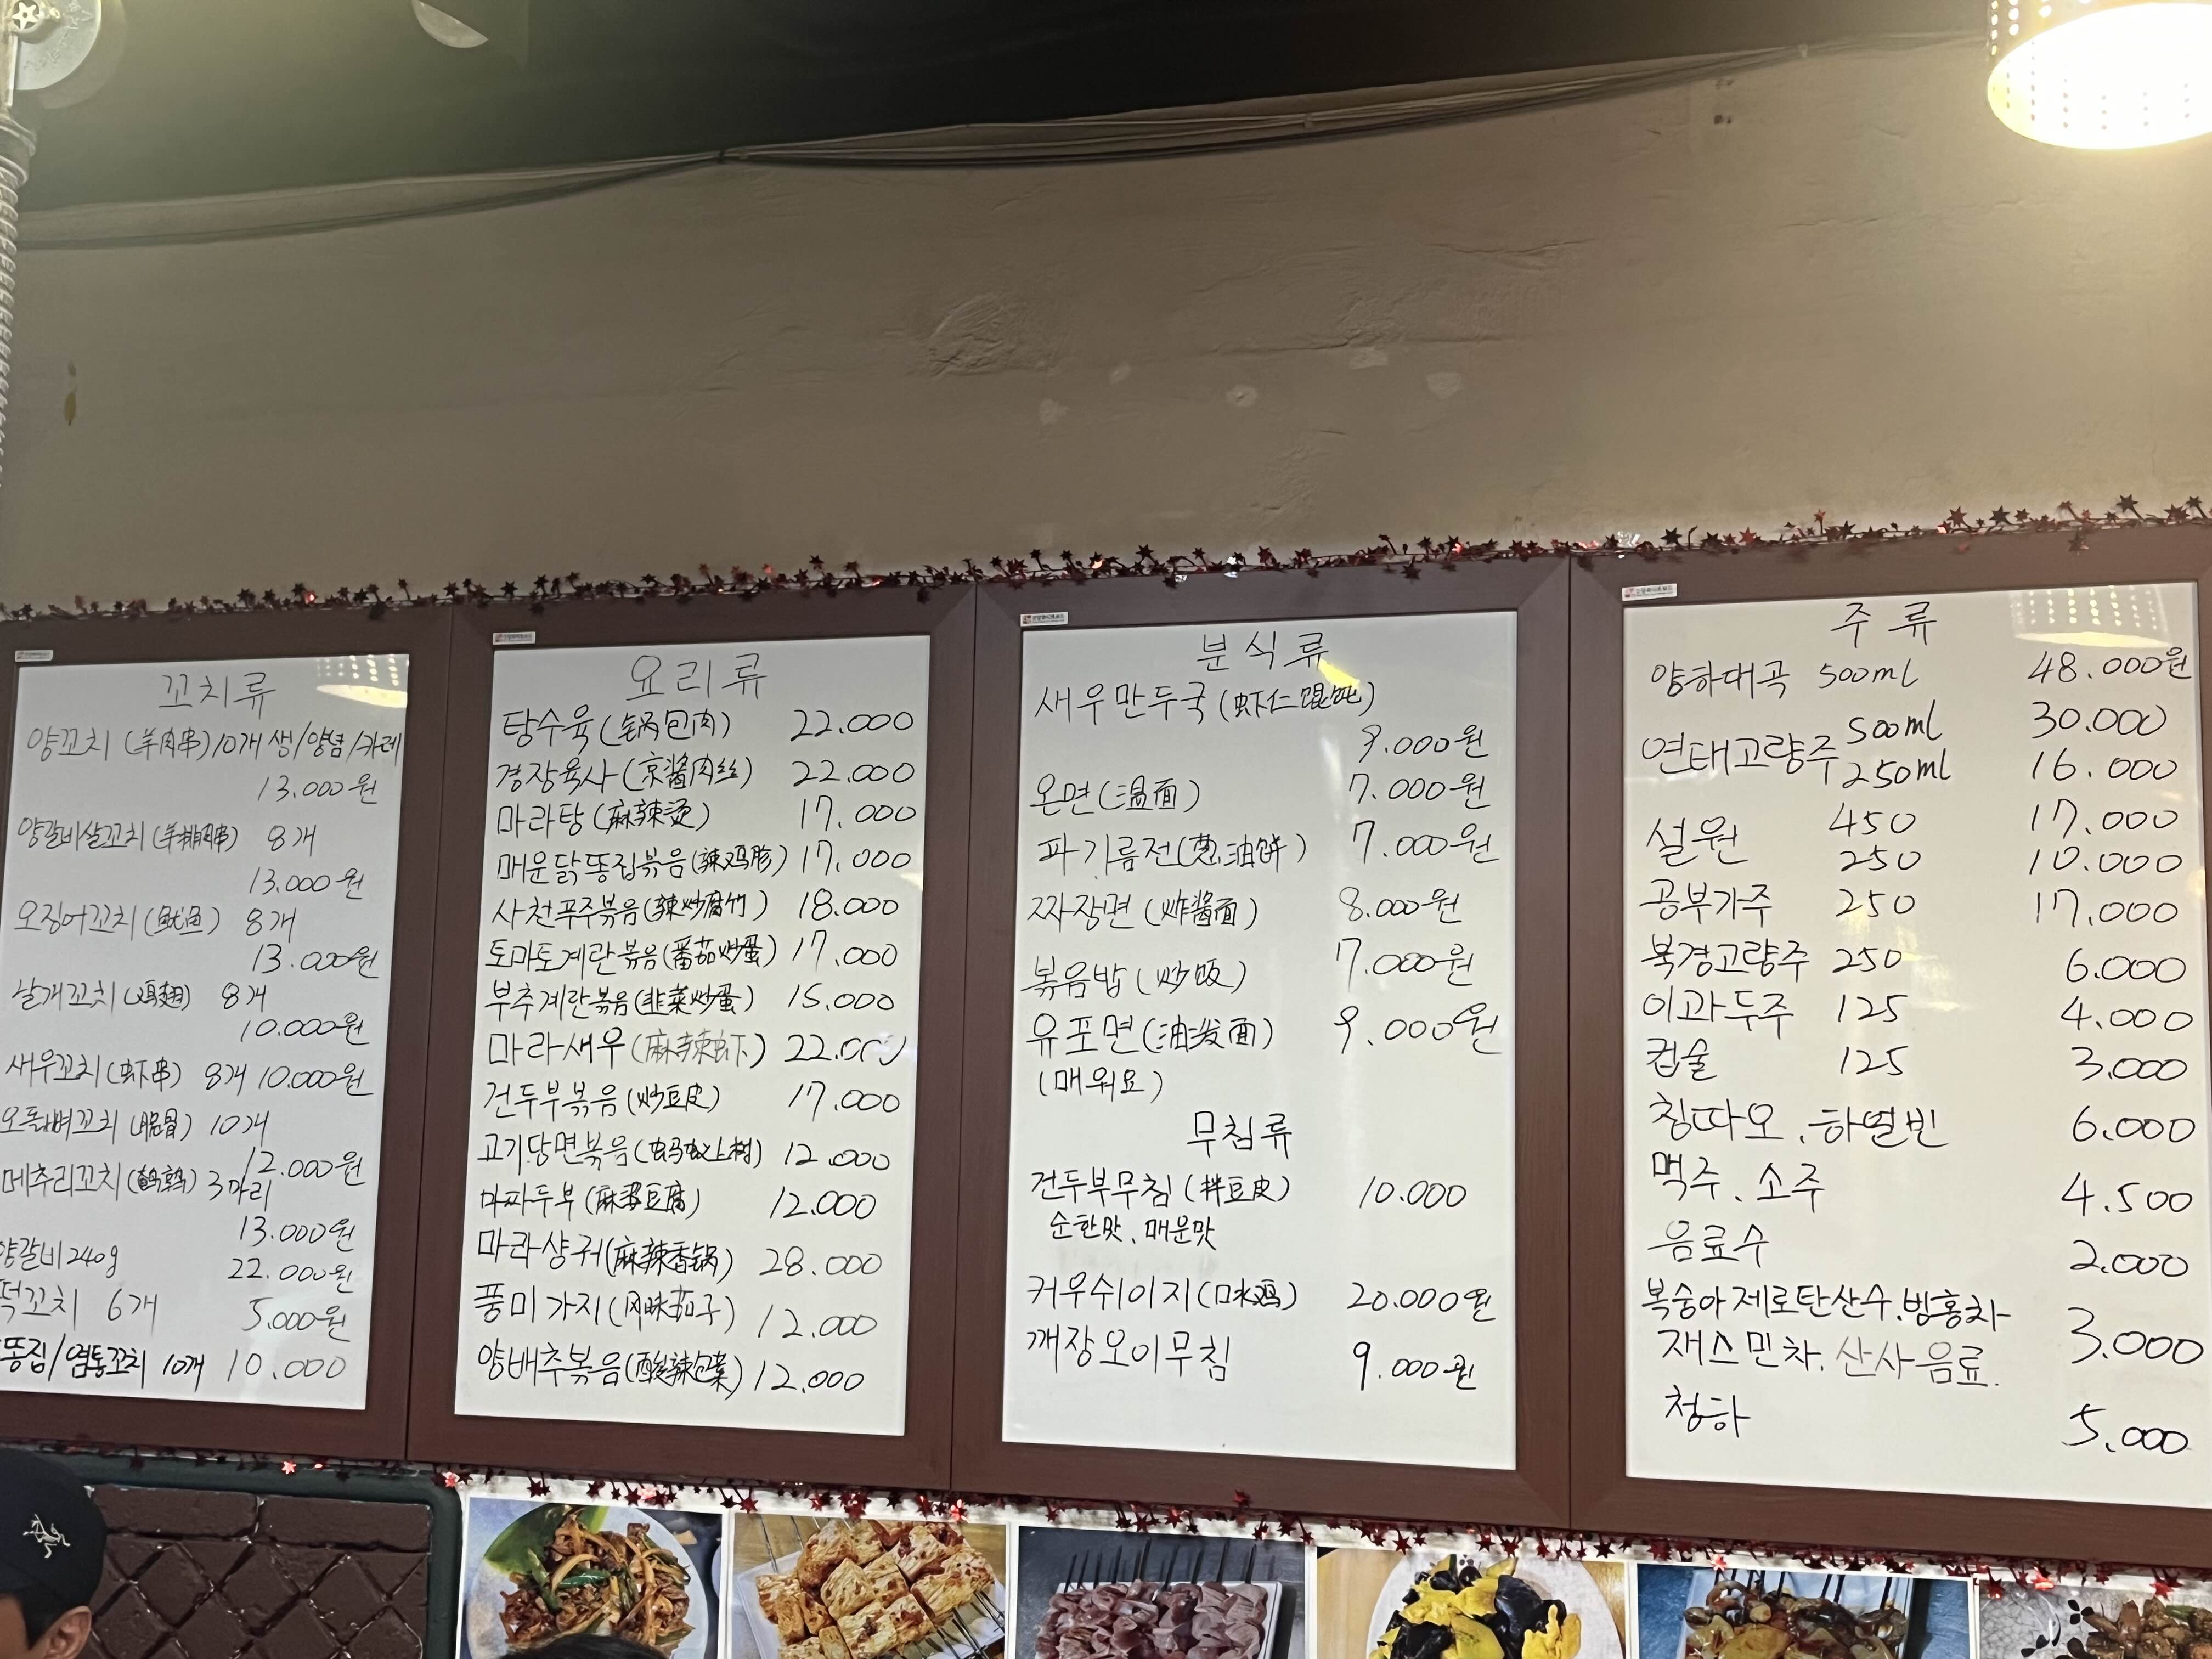 꼬치류
양꼬치 (羊肉串) 10개 생/양념/카레
13.000원
양갈비살꼬치 (羊排肉串) 8개
13.000원
오징어꼬치 (鱿鱼) 8개
13.000원
날개꼬치 (鸡翅) 8개
10.000원
새우꼬치 (虾串) 8개 10.000원
오돌뼈꼬치 (脆骨) 10개
12.000원
메추리꼬치 (鹌鹑) 3마리
13.000원
양갈비 240g 22.000원
떡꼬치 6개 5.000원
똥집/염통꼬치 10개 10.000
요리류
탕수육 (锅包肉) 22.000
경장육사 (京酱肉丝) 22.000
마라탕 (麻辣烫) 17.000
매운닭똥집볶음 (辣鸡胗) 17.000
사천푸주볶음 (辣炒腐竹) 18.000
토마토계란볶음 (番茄炒蛋) 17.000
부추계란볶음 (韭菜炒蛋) 15.000
마라새우 (麻辣虾) 22.000
건두부볶음 (炒豆皮) 17.000
고기당면볶음 (蚂蚁上树) 12.000
마파두부 (麻婆豆腐) 12.000
마라샹궈 (麻辣香锅) 28.000
풍미가지 (风味茄子) 12.000
양배추볶음 (酸辣包菜) 12.000
분식류
새우만두국 (虾仁馄饨)
9.000원
온면 (温面) 7.000원
파기름전 (葱油饼) 7.000원
짜장면 (炸酱面) 8.000원
볶음밥 (炒饭) 7.000원
유포면 (油泼面) 9.000원
(매워요)
무침류
건두부무침 (拌豆皮) 10.000
순한맛, 매운맛
커우쉬이지 (口水鸡) 20.000원
깨장오이무침 9.000원
주류
양하대곡 500ml 48.000원
연태고량주 500ml 30.000
250ml 16.000
설원 450 17.000
250 10.000
공부가주 250 17.000
북경고량주 250 6.000
이과두주 125 4.000
컵술 125 3.000
칭따오, 하얼빈 6.000
맥주, 소주 4.500
음료수 2.000
복숭아제로탄산수, 빙홍차
재스민차, 산사음료. 3.000
청하 5.000